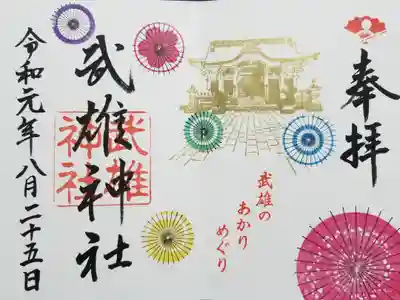 奉拝
武雄の
あかり
めぐり
武雄神社
武雄
神社
令和元年八月二十五日